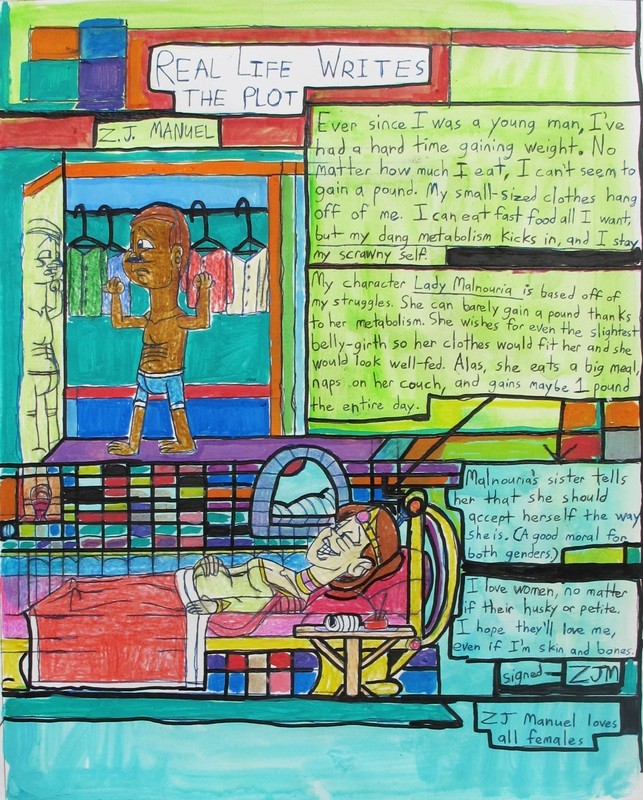 REAL LIFE WRITES
THE PLOT
Z.J. MANUEL
Ever since I was a young man, I've
had a hard time gaining weight. No
matter how much I eat, I can't seem to
gain a pound. My small-sized clothes hang
off of me. I can eat fast food all I want,
but my dang metabolism kicks in, and I stay
my scrawny self.
My character Lady Malnouria is based off of
my struggles. She can barely gain a pound thanks
to her metabolism. She wishes for even the slightest
belly-girth so her clothes would fit her and she
would look well-fed. Alas, she eats a big meal,
naps on her couch, and gains maybe 1 pound
the entire day.
Malnouria's sister tells
her that she should
accept herself the way
she is. (A good moral for
both genders.)
I love women, no matter
if their husky or petite.
I hope they'll love me,
even if I'm skin and bones.
signed— ZJM
ZJ Manuel loves
all females